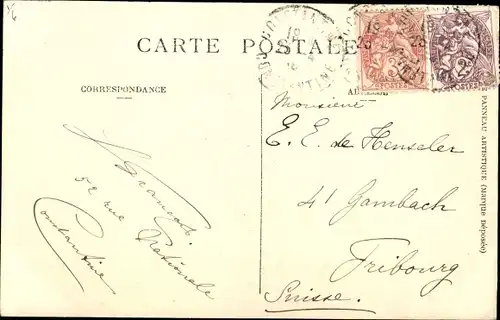 CARTE POSTALE
CORRESPONDANCE
Monsieur
E. E. de Henseler
41 Gambach
Fribourg
Suisse.
52 rue Nationale
Constantine
PANNEAU ARTISTIQUE (Marque Déposée)